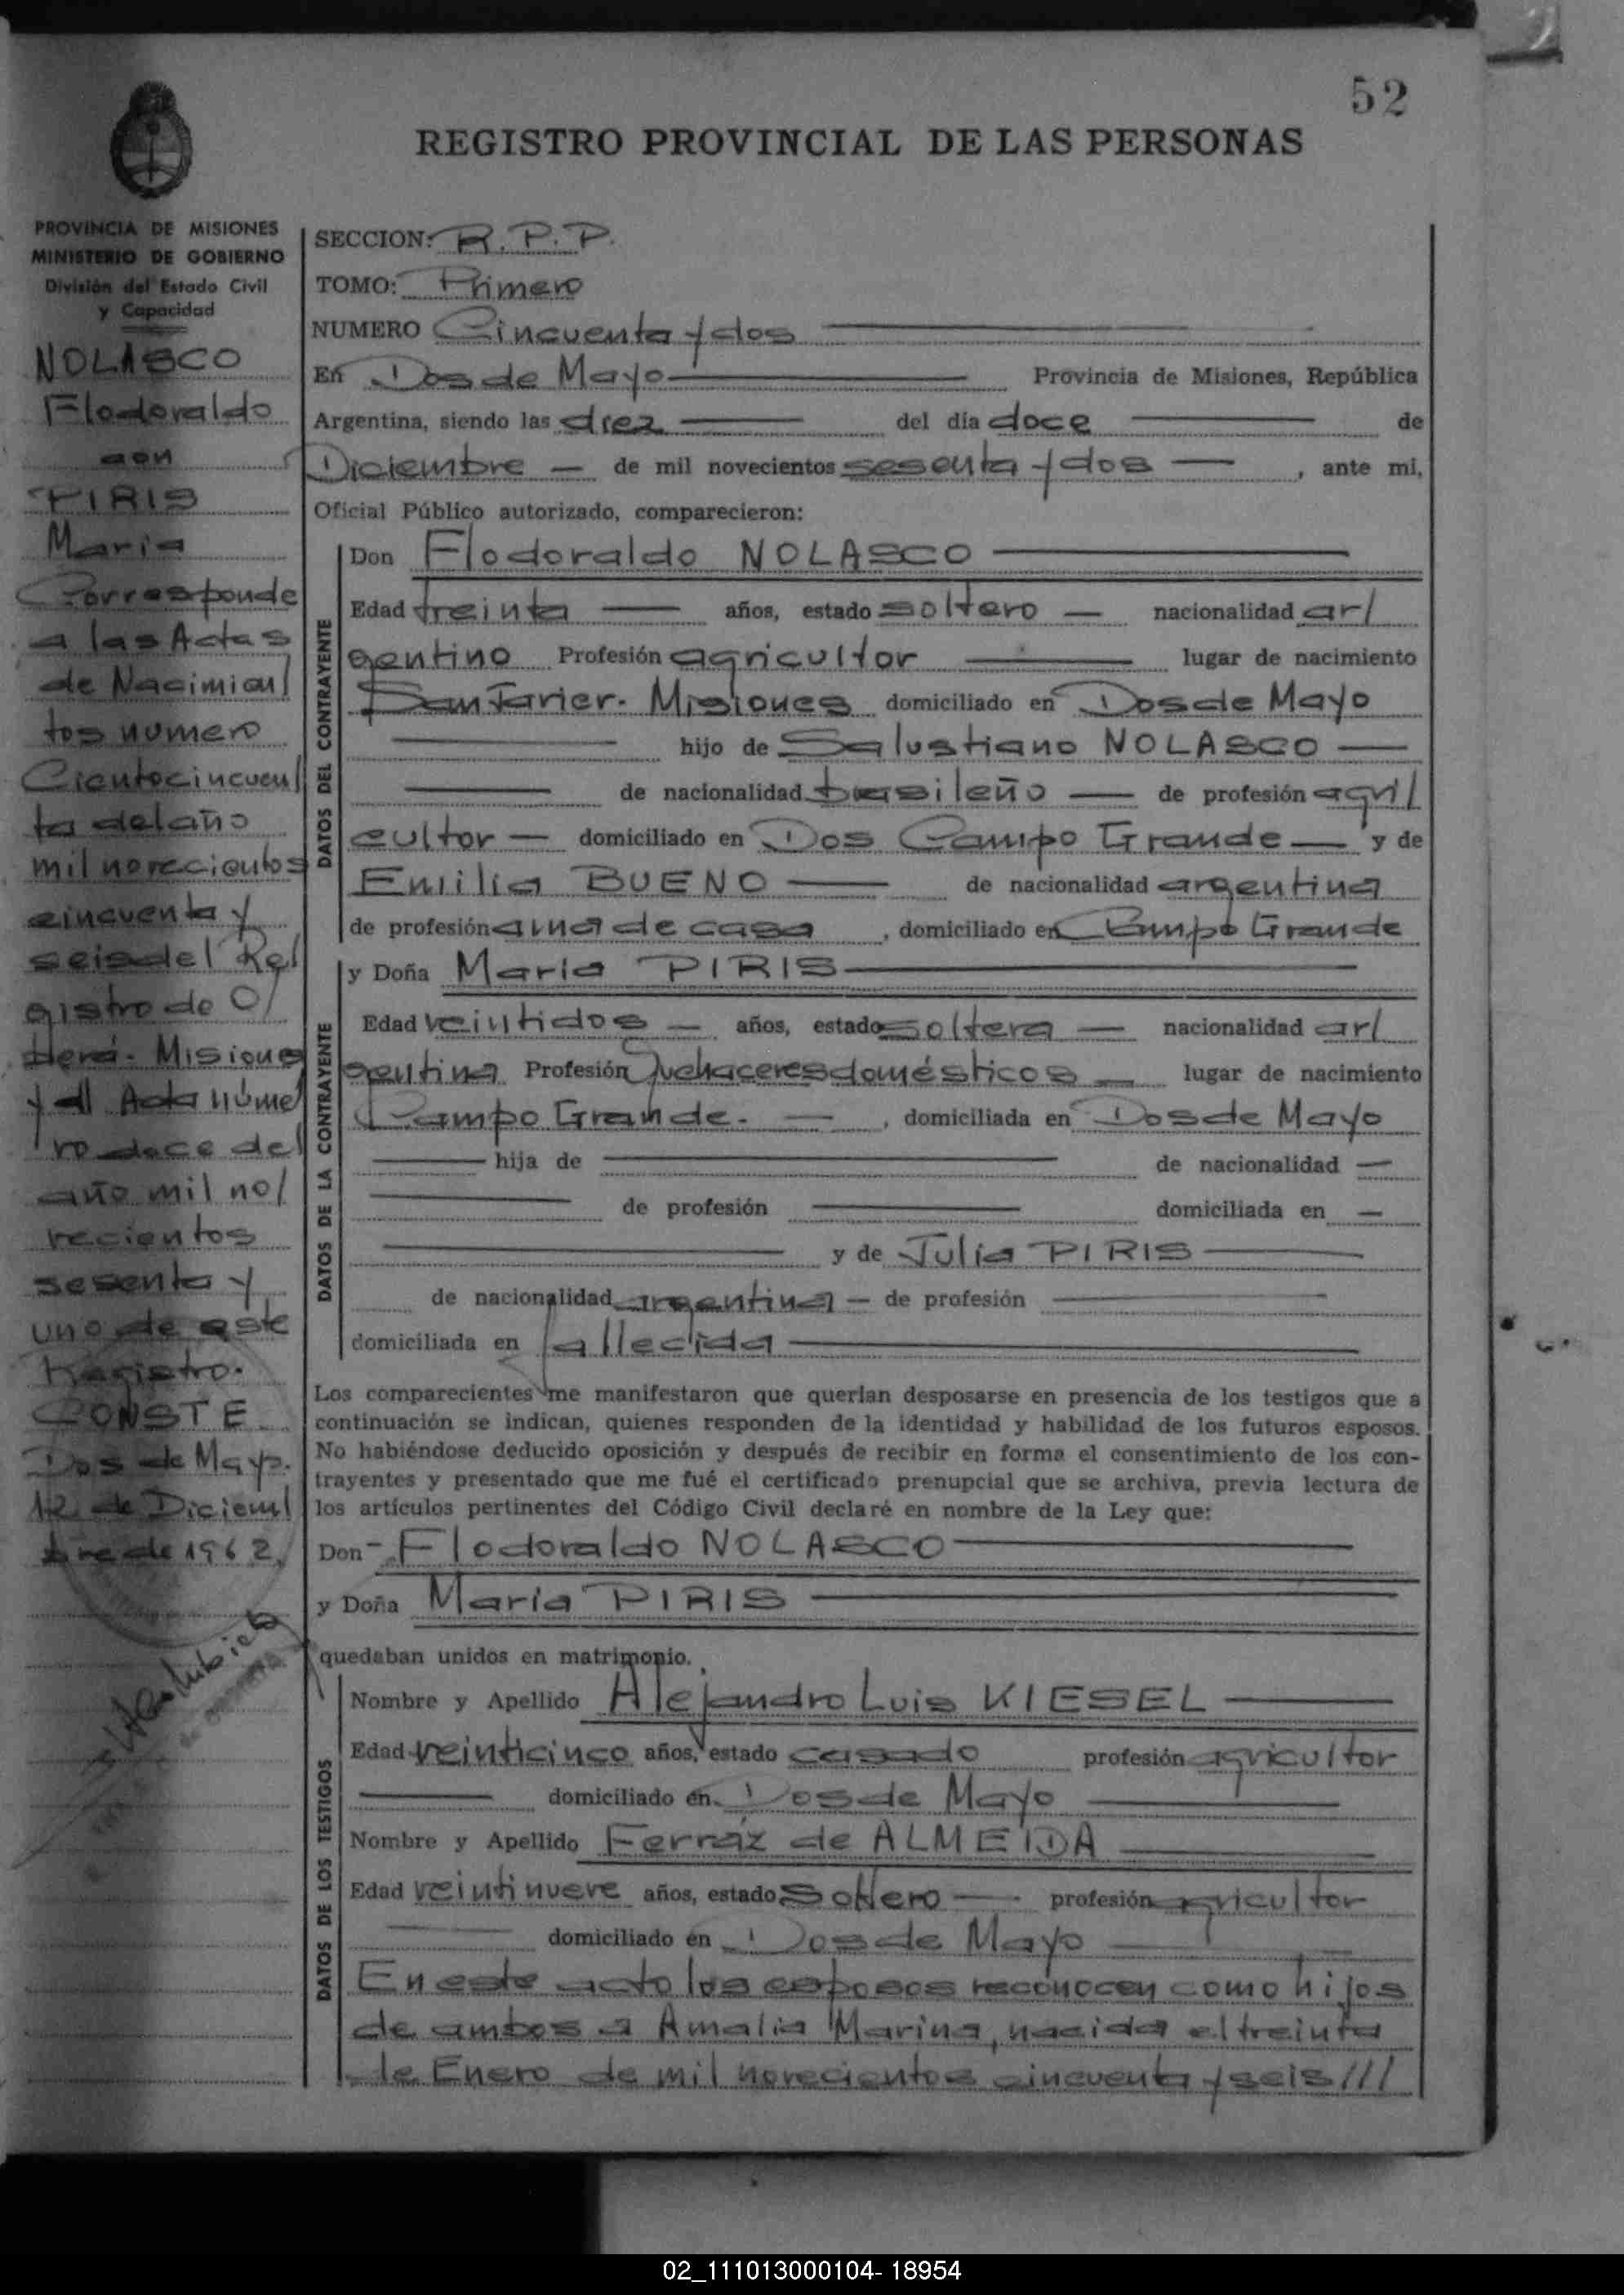 52
REGISTRO PROVINCIAL DE LAS PERSONAS
PROVINCIA DE MISIONES
MINISTERIO DE GOBIERNO
División del Estado Civil
y Capacidad
NOLASCO
Flodoraldo
con
PIRIS
Maria
Corresponde
a las Actas
de Nacimien/
tos numero
Cientocincuen/
ta del año
mil novecientos
cincuenta y
seis del Re/
gistro de O/
berá - Misiones
y al Acta núme/
ro doce del
año mil no/
vecientos
sesenta y
uno de este
Registro.
CONSTE
Dos de Mayo.
12 de Diciem/
bre de 1962,
SECCION: R.P.P.
TOMO: Primero
NUMERO Cincuenta y dos
En Dos de Mayo Provincia de Misiones, República
Argentina, siendo las diez del día doce de
Diciembre de mil novecientos sesenta y dos, ante mi,
Oficial Público autorizado, comparecieron:
DATOS DEL CONTRAYENTE
Don Flodoraldo NOLASCO
Edad treinta años, estado soltero nacionalidad ar/
gentino Profesión agricultor lugar de nacimiento
San Javier. Misiones domiciliado en Dos de Mayo
hijo de Salustiano NOLASCO
de nacionalidad brasileño de profesión agri/
cultor domiciliado en Dos Campo Grande y de
Emilia BUENO de nacionalidad argentina
de profesión ama de casa, domiciliado en Campo Grande
DATOS DE LA CONTRAYENTE
y Doña Maria PIRIS
Edad veintidos años, estado soltera nacionalidad ar/
gentina Profesión Quehaceres domésticos lugar de nacimiento
Campo Grande. , domiciliada en Dos de Mayo
hija de de nacionalidad
de profesión domiciliada en
y de Julia PIRIS
de nacionalidad argentina de profesión
domiciliada en fallecida
Los comparecientes me manifestaron que querían desposarse en presencia de los testigos que a
continuación se indican, quienes responden de la identidad y habilidad de los futuros esposos.
No habiéndose deducido oposición y después de recibir en forma el consentimiento de los con-
trayentes y presentado que me fué el certificado prenupcial que se archiva, previa lectura de
los artículos pertinentes del Código Civil declaré en nombre de la Ley que:
Don Flodoraldo NOLASCO
y Doña Maria PIRIS
quedaban unidos en matrimonio.
DATOS DE LOS TESTIGOS
Nombre y Apellido Alejandro Luis KIESEL
Edad veinticinco años, estado casado profesión agricultor
domiciliado en Dos de Mayo
Nombre y Apellido Ferráz de ALMEIDA
Edad veintinueve años, estado Soltero profesión agricultor
domiciliado en Dos de Mayo
En este acto los esposos reconocen como hijos
de ambos a Amalia Marina, nacida el treinta
de Enero de mil novecientos cincuenta y seis///
02_111013000104- 18954